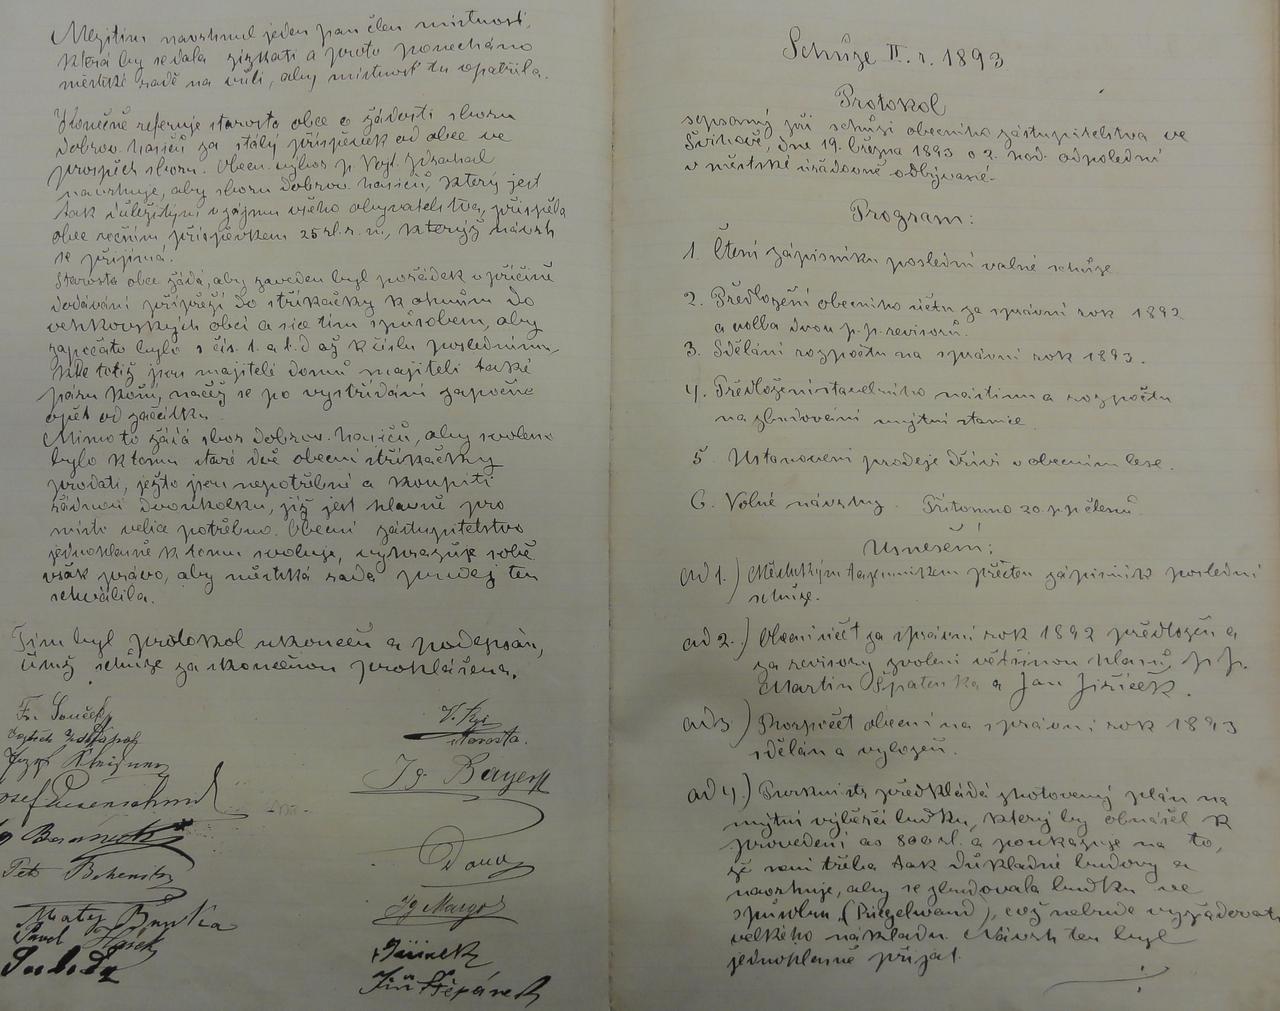 Mezitím navrhnul jeden pan člen místnost,
která by se dala získati a proto ponecháno
městské radě na vůli, aby místnost tu opatřila.
Konečně referuje starosta obce o žádosti sboru
dobrov. hasičů za stálý příspěvek od obce ve
prospěch sboru. Obecn. výbor p. Vojt.
navrhuje, aby sboru dobrov. hasičů, který jest
tak důležitým v zájmu všeho obyvatelstva, přispěla
obec ročním příspěvkem 25 zl. r. m., kterýž návrh
se přijímá.
Starosta obce žádá, aby zaveden byl pořádek v příčině
dodávání přípřeží do stříkačky k ohňům do
venkovských obcí a sice tím spůsobem, aby
započato bylo s čís. 1. a t. d až k číslu poslednímu,
kde totiž jsou majiteli domů majiteli také
páru koní, načež se po vystřídání započne
opět od začátku.
Mimo to žádá sbor dobrov. hasičů, aby svoleno
bylo k tomu staré dvě obecní stříkačky
prodati, ježto jsou nepotřebné a koupiti
řádnou dvoukolku, jíž jest hlavně pro
místo velice potřebno. Obecní zástupitelstvo
jednohlasně k tomu svoluje, vyhrazuje sobě
však právo, aby městská rada prodej ten
schválila.
Tím byl protokol ukončen a podepsán,
čímž schůze za skončenou prohlášena.
Fr. Souček
V. Krs
starosta.
Ig. Bayerl
Josef Eisenschmel
Petr
Matěj
Ig Margol
Pavel Hásek
Jiříček
Jiří Štěpánek
Schůze II. r. 1893
Protokol
sepsaný při schůzi obecního zástupitelstva ve
Švihově, dne 19. března 1893 o 2. hod. odpolední
v městské úřadovně odbývané.
Program:
1. Čtení zápisníku poslední valné schůze
2. Předložení obecního účtu za správní rok 1892
a volba dvou p. p. revisorů.
3. Sdělání rozpočtu na správní rok 1893.
4. Předložení stavebního nástinu a rozpočtu
na zbudování mýtní stanice
5 Ustanovení prodeje dříví v obecním lese.
6. Volné návrhy. Přítomno 20 p. p. členů
Usnešení:
ad 1.) Městským tajemníkem přečten zápisník poslední
schůze.
ad 2.) Obecní účet za správní rok 1892 předložen a
za revisory zvoleni většinou hlasů p. p.
Martin Špatenka a Jan Jiříček.
ad 3) Rozpočet obecní na správní rok 1893
sdělán a vyložen.
ad 4.) Purkmistr předkládá zhotovený plán na
mýtní výběrčí budku, který by obnášel k
provedení as 800 zl. a poukazuje na to,
že není třeba tak důkladné budovy a
navrhuje, aby se zbudovala budka ve
spůsobu (Riegelwand), což nebude vyžadovati
velkého nákladu. Návrh ten byl
jednohlasně přijat.